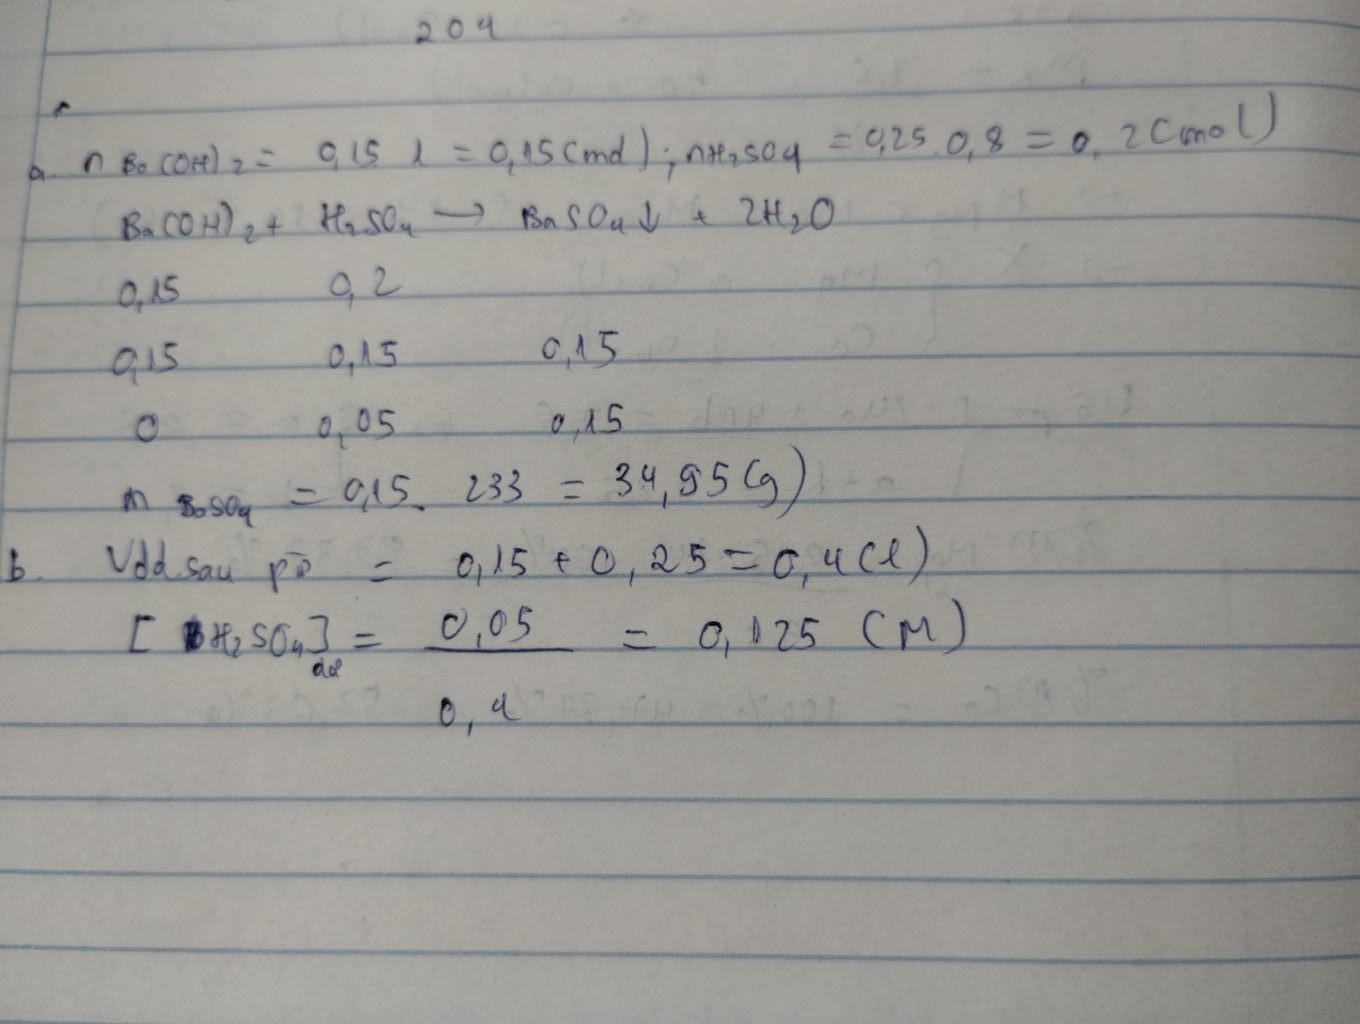 204
a. n Ba(OH)2 = 0,15 . 1 = 0,15 (mol) ; nH2SO4 = 0,25 . 0,8 = 0,2 (mol)
Ba(OH)2 + H2SO4 → BaSO4 ↓ + 2H2O
0,15 0,2
0,15 0,15 0,15
0 0,05 0,15
m BaSO4 = 0,15 . 233 = 34,95 (g)
b. Vdd sau pư = 0,15 + 0,25 = 0,4 (l)
[H2SO4]dư = 0,05 / 0,4 = 0,125 (M)